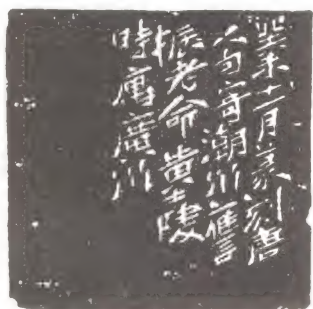 癸未十一月篆刻唐
人句寄潮州舊
振老命黄士陵
時寓廣州